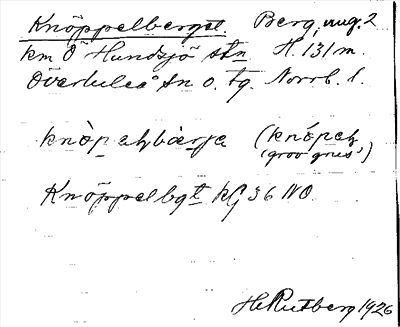 Knöppelberget. Berg, ung. 2
km Ö Hundsjö stn H. 131 m.
Överluleå sn o. tg. Norrb. l.
(knópaḷ
'grov grus')
Knöppelbgt kbl 36 NO.
H Rutberg 1926